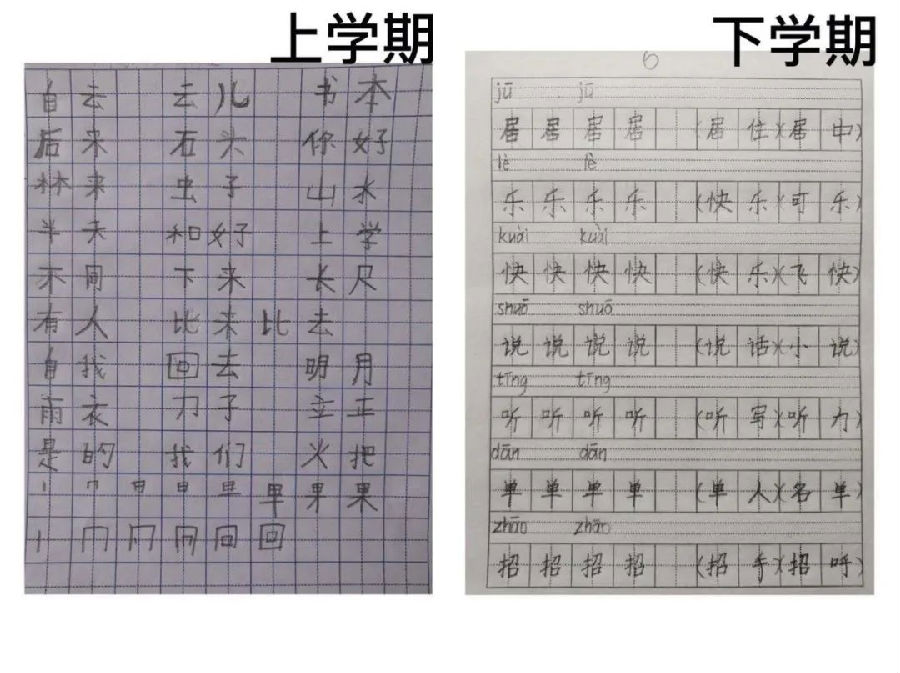 上学期
白云 云儿 书本
后来 石头 你好
林来 虫子 山水
半天 和好 上学
不同 下来 长尺
有人 比来比去
自我 回去 明月
雨衣 刀子 立正
是的 我们 火把
果
丨 冂 回
下学期
6
jū jū
居 居 居 居 (居住)(居中)
lè lè
乐 乐 乐 乐 (快乐)(可乐)
kuài kuài
快 快 快 快 (快乐)(飞快)
shuō shuō
说 说 说 说 (说话)(小说)
tīng tīng
听 听 听 听 (听写)(听力)
dān dān
单 单 单 单 (单人)(名单)
zhāo zhāo
招 招 招 招 (招手)(招呼)